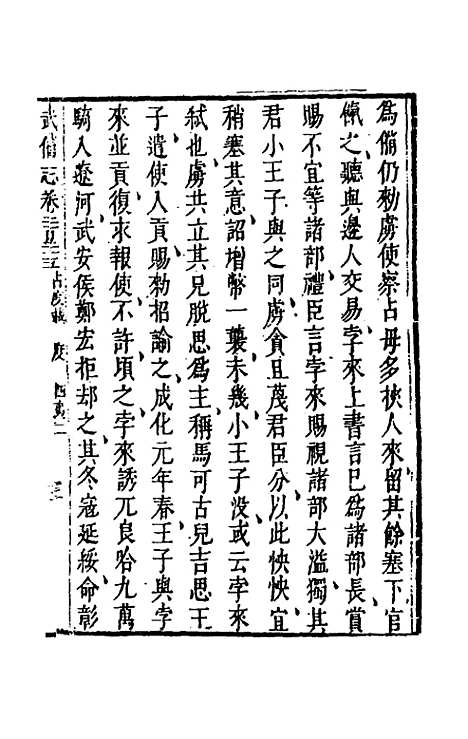 為備仍勑虜使察占毋多挾人來留其餘塞下官
餼之聽與邊人交易孛來上書言已為諸部長賞
賜不宜等諸部禮臣言孛來賜視諸部大溢獨其
君小王子與之同虜貪且蔑君臣分以此怏怏宜
稍塞其意詔增幣一襲未幾小王子没或云孛來
弑也虜共立其兒脫思為主稱馬可古兒吉思王
子遣使入貢賜勑招諭之成化元年春王子與孛
來並貢復求報使不許頃之孛來誘兀良哈九萬
騎入遼河武安侯鄭宏拒却之其冬寇延綏命彰
武備志卷二百二十五 占度載 度 四夷二